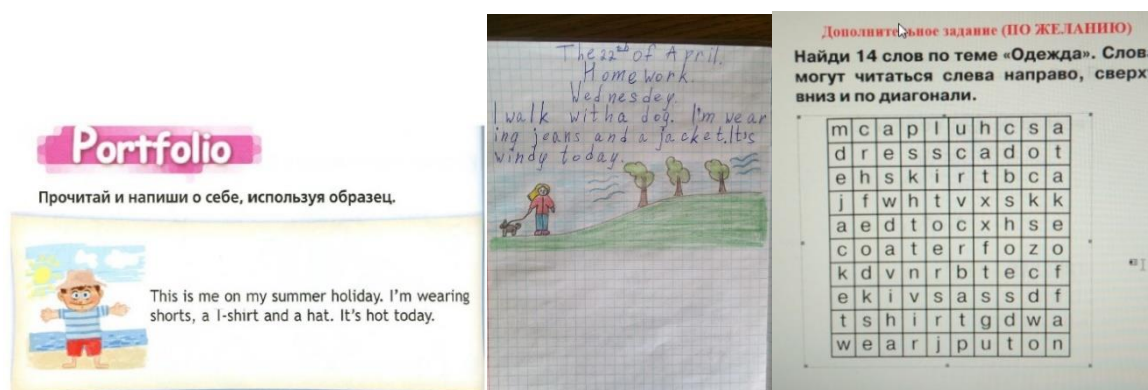 Portfolio
Прочитай и напиши о себе, используя образец.
This is me on my summer holiday. I'm wearing
shorts, a T-shirt and a hat. It's hot today.
The 22nd of April.
Home work.
Wednesdey.
I walk witha dog. I'm wear
ing jeans and a jacket.It's
windy today.
Дополнительное задание (ПО ЖЕЛАНИЮ)
Найди 14 слов по теме «Одежда». Слова
могут читаться слева направо, сверх
вниз и по диагонали.
m c a p l u h c s a
d r e s s c a d o t
e h s k i r t b c a
j f w h t v x s k k
a e d t o c x h s e
c o a t e r f o z o
k d v n r b t e c f
e k i v s a s s d f
t s h i r t g d w a
w e a r j p u t o n